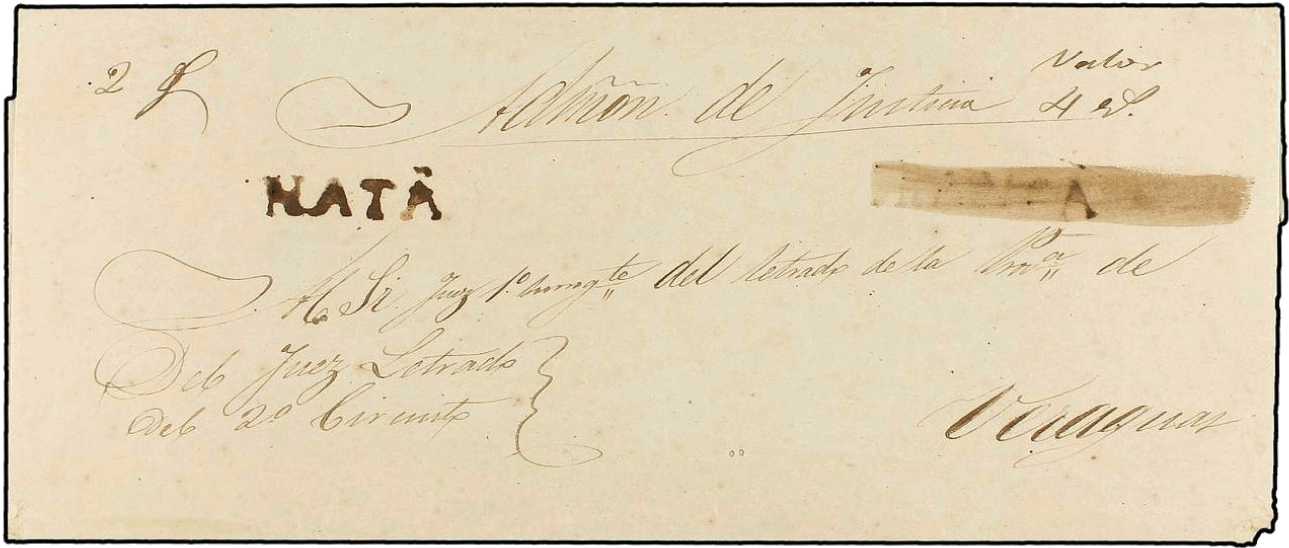 2 Admõn. de Justicia Valor
4 rs.
NATÃ
Al Sr. Juez 1º surrogte del letrado de la Prova de
Del Juez Letrado
del 2º Circuito
Veraguas